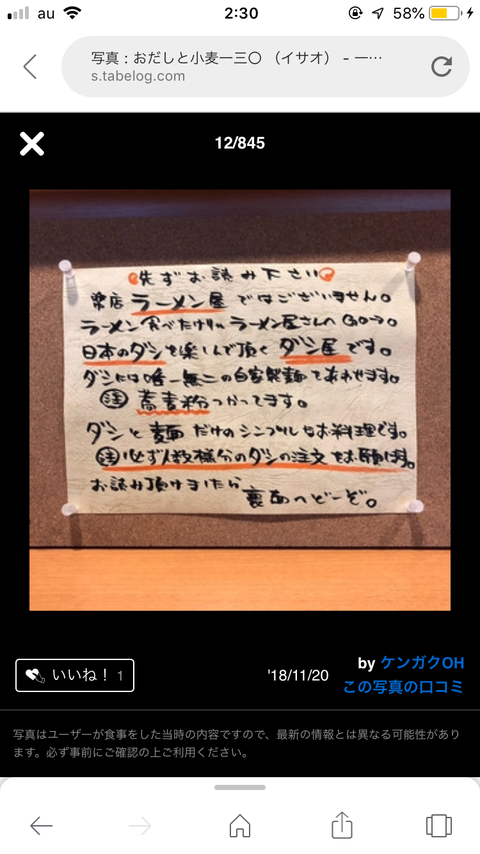 au 2:30 58%
写真：おだしと小麦一三〇 （イサオ） - 一…
s.tabelog.com
12/845
先ずお読み下さい
楽店ラーメン屋ではございません。
ラーメン食べたけりゃラーメン屋さんへGO→。
日本のダシを楽しんで頂くダシ屋です。
ダシには唯一無二の自家製麺であわせます。
注 蕎麦粉つかってます。
ダシと麺だけのシンプルなお料理です。
注 必ず人数様分のダシの注文をお願います。
お読み頂けましたら
裏面へどーぞ。
いいね！ 1
'18/11/20
by ケンガクOH
この写真の口コミ
写真はユーザーが食事をした当時の内容ですので、最新の情報とは異なる可能性があり
ます。必ず事前にご確認の上ご利用ください。